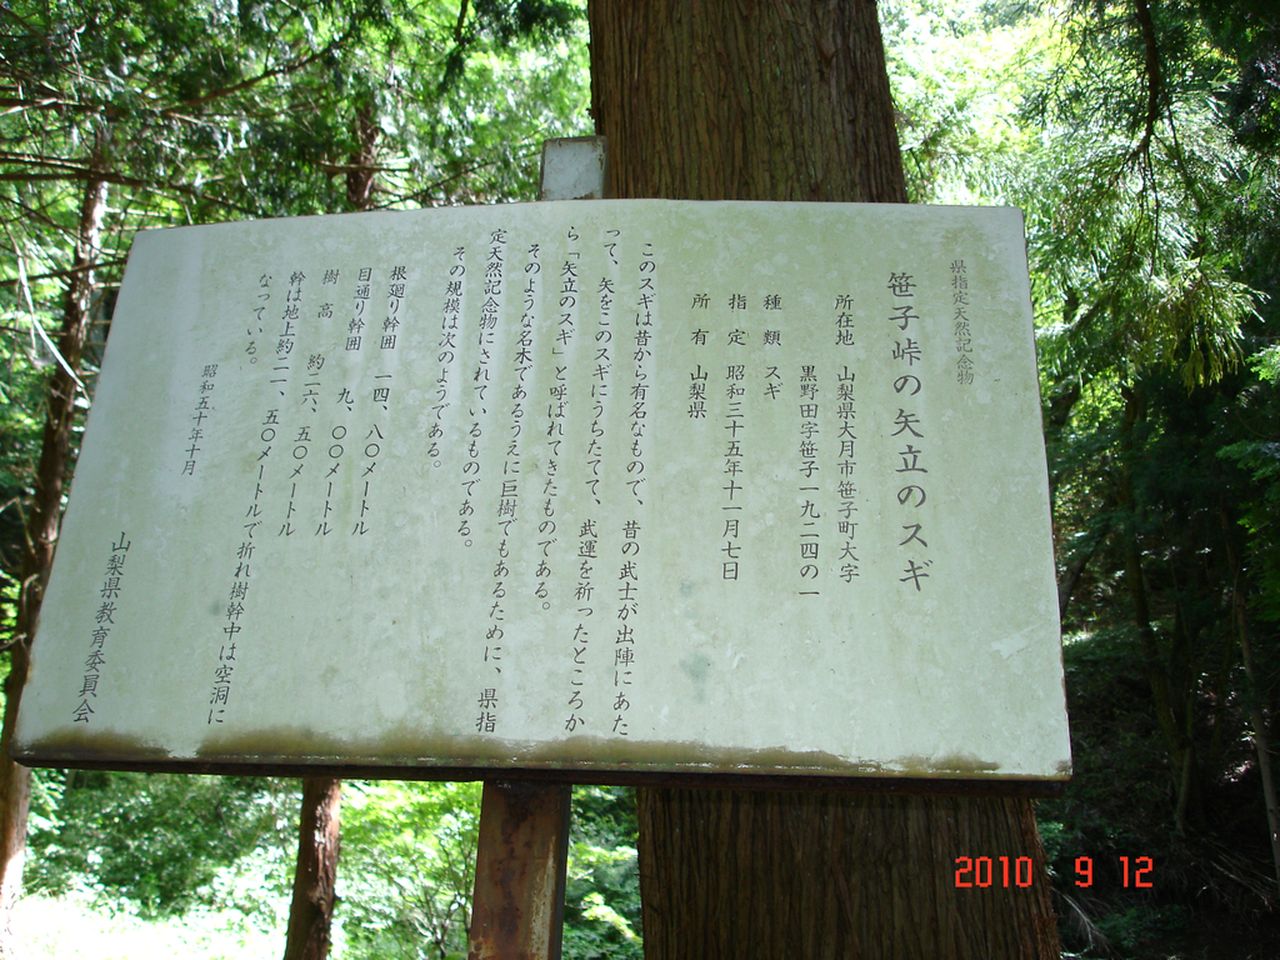 県指定天然記念物
笹子峠の矢立のスギ
所在地 山梨県大月市笹子町大字
黒野田字笹子一九二四の一
種類 スギ
指定 昭和三十五年十一月七日
所有 山梨県
このスギは昔から有名なもので、昔の武士が出陣にあた
って、矢をこのスギにうちたてて、武運を祈ったところか
ら「矢立のスギ」と呼ばれてきたものである。
そのような名木であるうえに巨樹でもあるために、県指
定天然記念物にされているものである。
その規模は次のようである。
根廻り幹囲 一四、八〇メートル
目通り幹囲 九、〇〇メートル
樹高 約二六、五〇メートル
幹は地上約二一、五〇メートルで折れ樹幹中は空洞に
なっている。
昭和五十年十月
山梨県教育委員会
2010 9 12